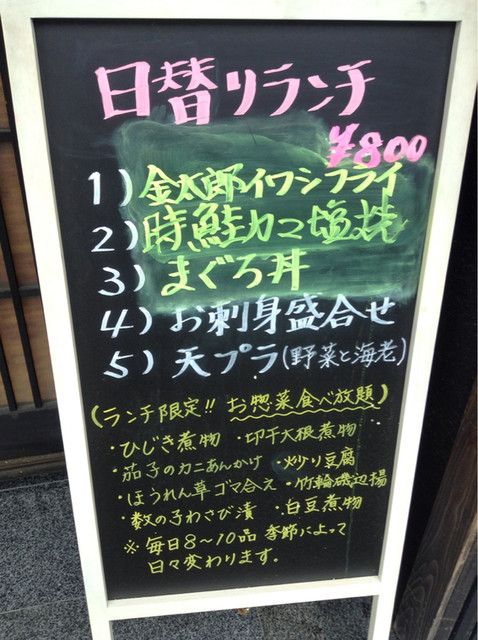 日替りランチ
¥800
1) 金太郎イワシフライ
2) 時鮭カマ塩焼
3) まぐろ丼
4) お刺身盛合せ
5) 天プラ(野菜と海老)
(ランチ限定!! お惣菜食べ放題)
・ひじき煮物 ・切干大根煮物
・茄子のカニあんかけ ・炒り豆腐
・ほうれん草ゴマ合え ・竹輪磯辺揚
・数の子わさび漬 ・白豆煮物
※ 毎日8〜10品 季節によって
日々変わります。